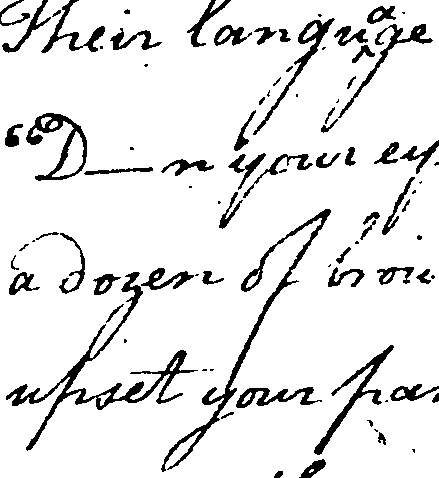 Their language
"D—n your ey
a dozen of brow
upset your par